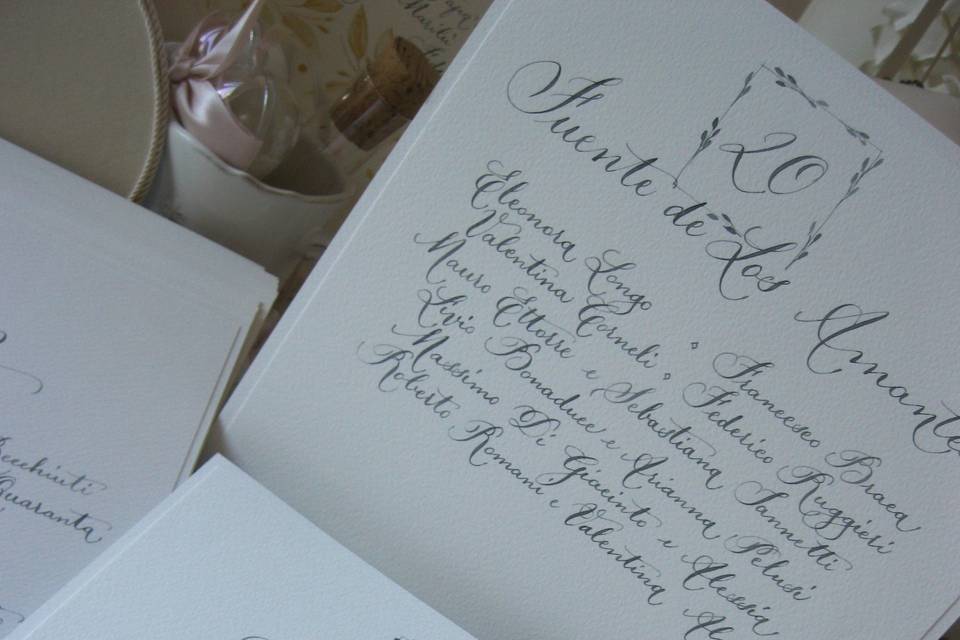 20
Fuente de Los Amantes
Eleonora Longo e Francesco Braca
Valentina Corneli e Federico Ruggieri
Mauro Ettorre e Sebastiana Iannetti
Livio Bonaduce e Arianna Pelusi
Massimo Di Giacinto e Alessia
Roberto Romani e Valentina Al
Quaranta